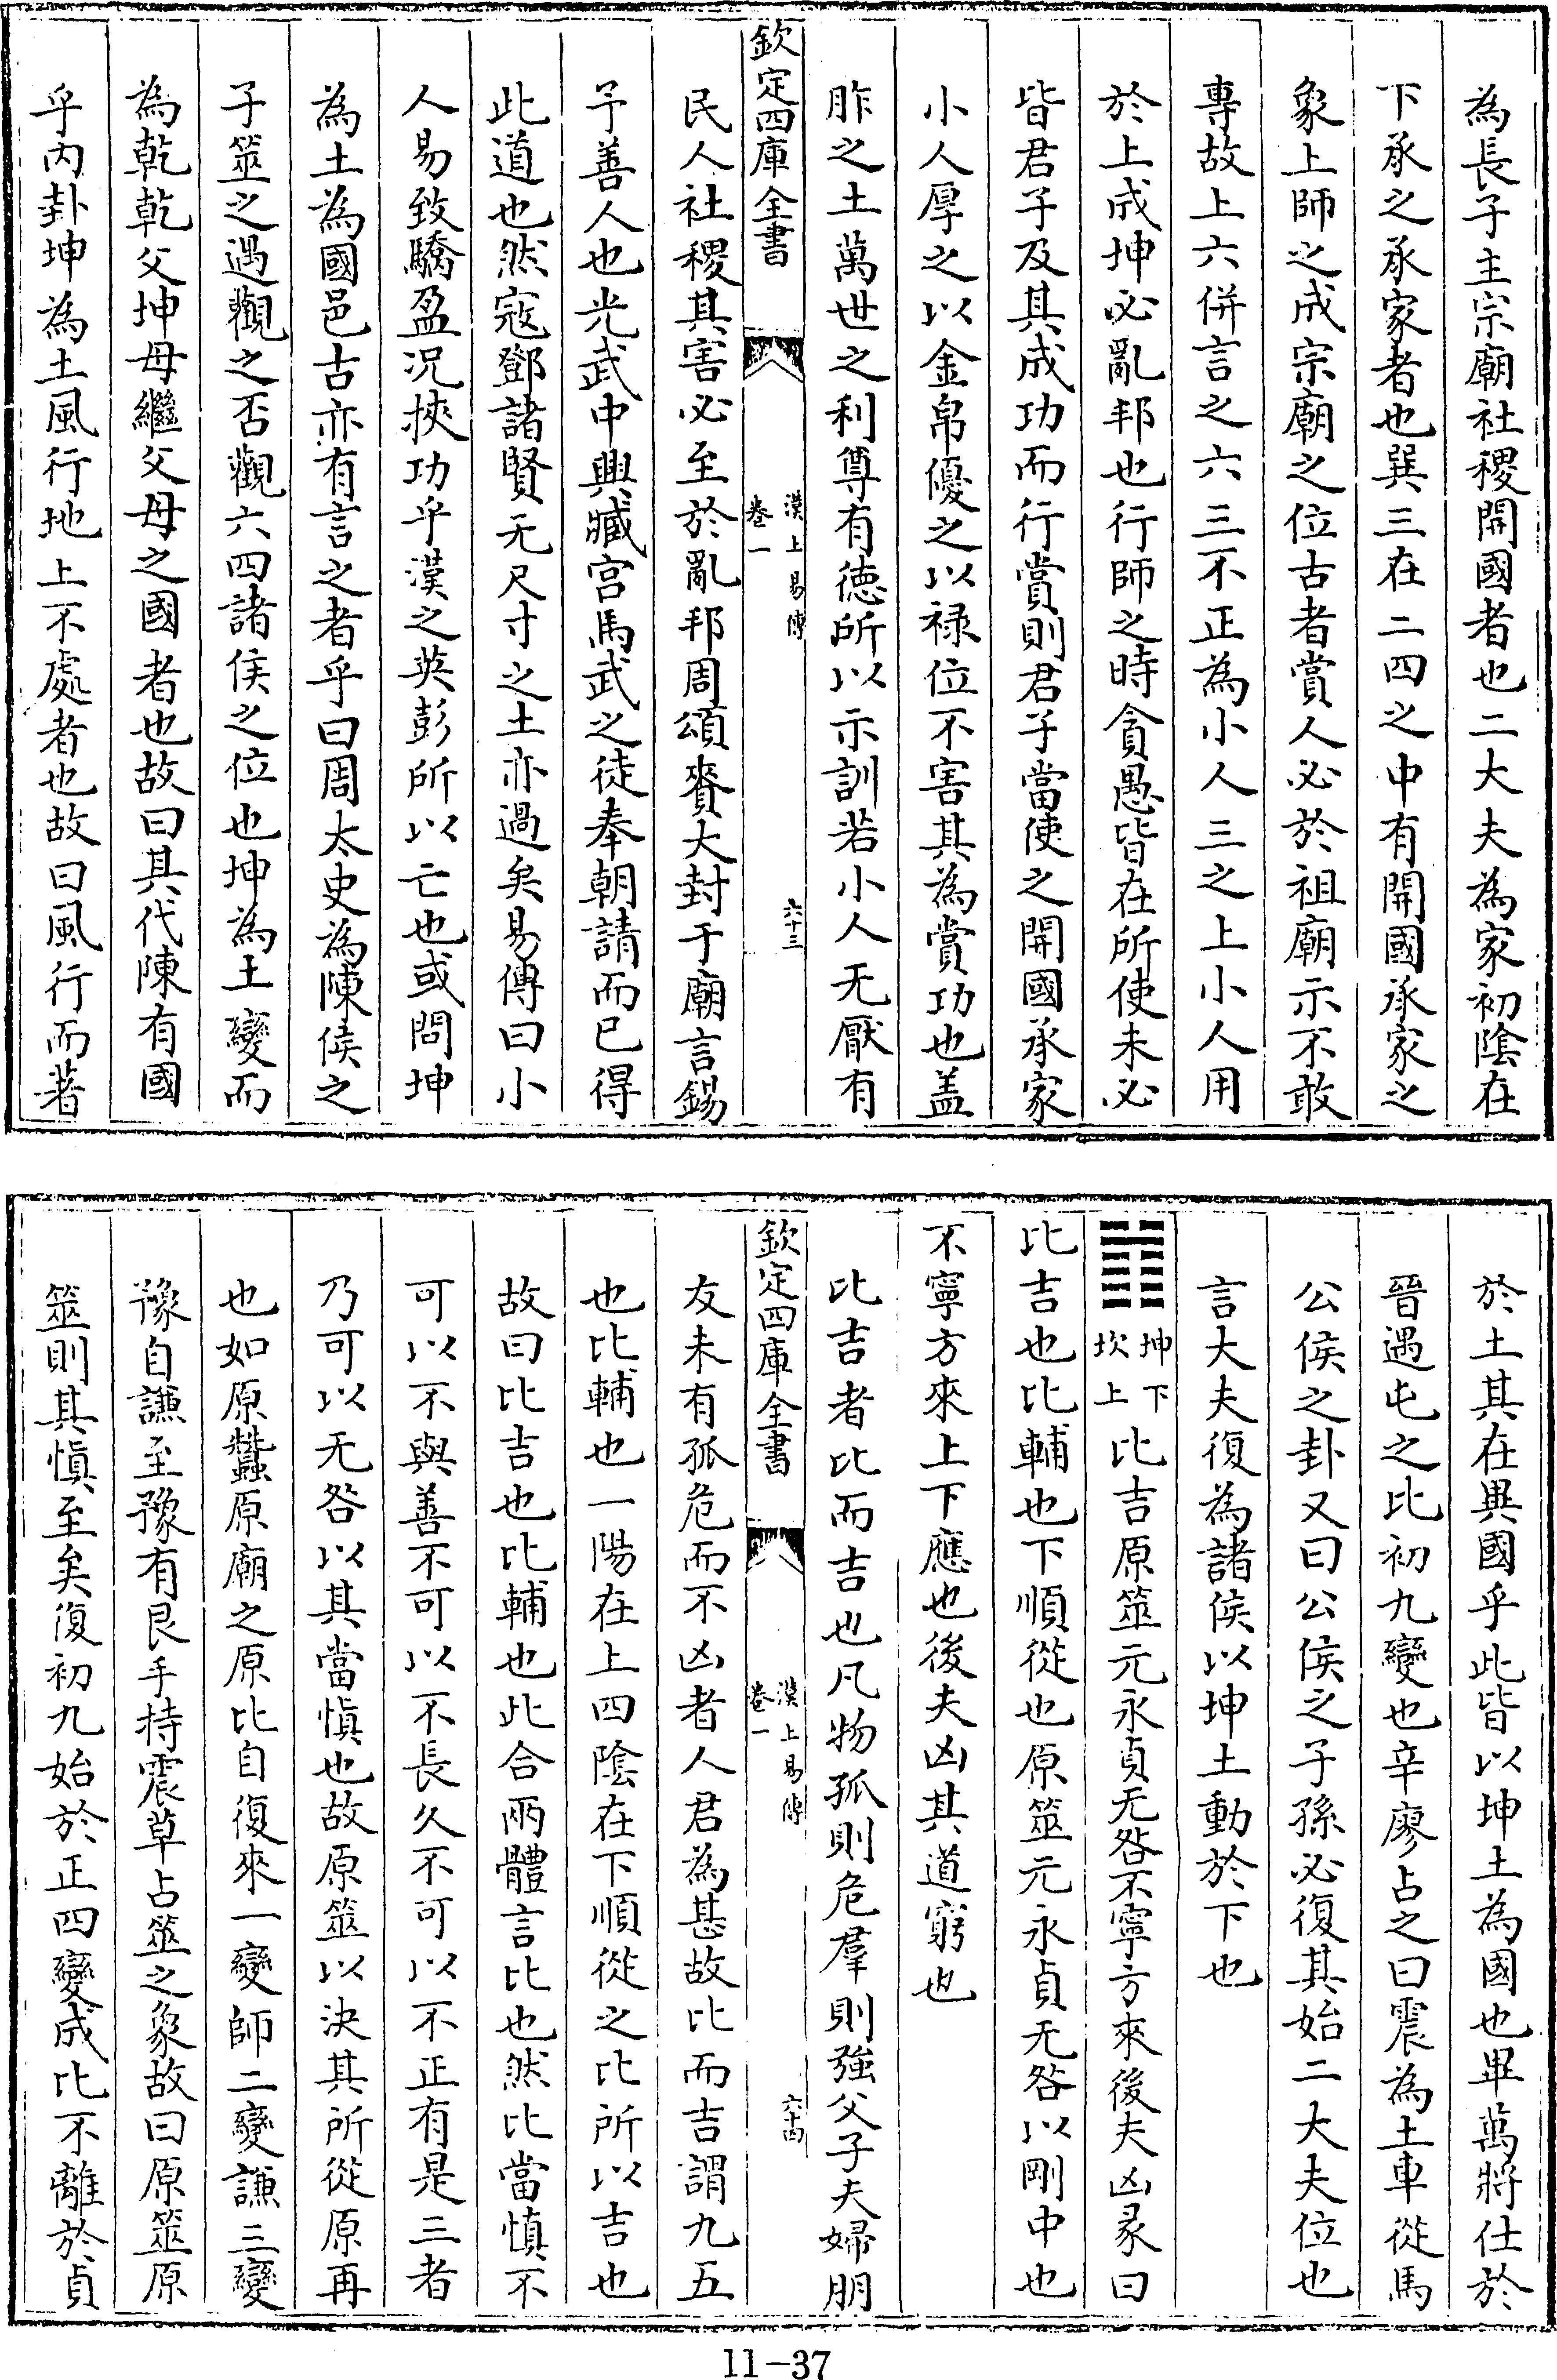 為長子主宗廟社稷開國者也二大夫為家初隂在
下承之承家者也巽三在二四之中有開國承家之
象上師之成宗廟之位古者賞人必於祖廟示不敢
專故上六併言之六三不正為小人三之上小人用
於上成坤必亂邦也行師之時貪愚皆在所使未必
皆君子及其成功而行賞則君子當使之開國承家
小人厚之以金帛優之以禄位不害其為賞功也盖
胙之土萬世之利尊有徳所以示訓若小人无厭有
欽定四庫全書
漢上易傳
卷一
六十三
民人社稷其害必至於亂邦周頌賚大封于廟言錫
予善人也光武中興臧宫馬武之徒奉朝請而已得
此道也然寇鄧諸賢无尺寸之土亦過矣易傳曰小
人易致驕盈况挾功乎漢之英彭所以亡也或問坤
為土為國邑古亦有言之者乎曰周太史為陳侯之
子筮之遇觀之否觀六四諸侯之位也坤為土變而
為乾乾父坤母繼父母之國者也故曰其代陳有國
乎内卦坤為土風行地上不處者也故曰風行而著
於土其在異國乎此皆以坤土為國也畢萬將仕於
晉遇屯之比初九變也辛廖占之曰震為土車從馬
公侯之卦又曰公侯之子孫必復其始二大夫位也
言大夫復為諸侯以坤土動於下也
䷇坤下坎上比吉原筮元永貞无咎不寧方來後夫凶彖曰
比吉也比輔也下順從也原筮元永貞无咎以剛中也
不寧方來上下應也後夫凶其道窮也
比吉者比而吉也凡物孤則危羣則強父子夫婦朋
欽定四庫全書
漢上易傳
卷一
六十四
友未有孤危而不凶者人君為甚故比而吉謂九五
也比輔也一陽在上四陰在下順從之比所以吉也
故曰比吉也比輔也此合兩體言比也然比當慎不
可以不與善不可以不長久不可以不正有是三者
乃可以无咎以其當慎也故原筮以決其所從原再
也如原蠶原廟之原比自復來一變師二變謙三變
豫自謙至豫有艮手持震草占筮之象故曰原筮原
筮則其慎至矣復初九始於正四變成比不離於貞
11-37